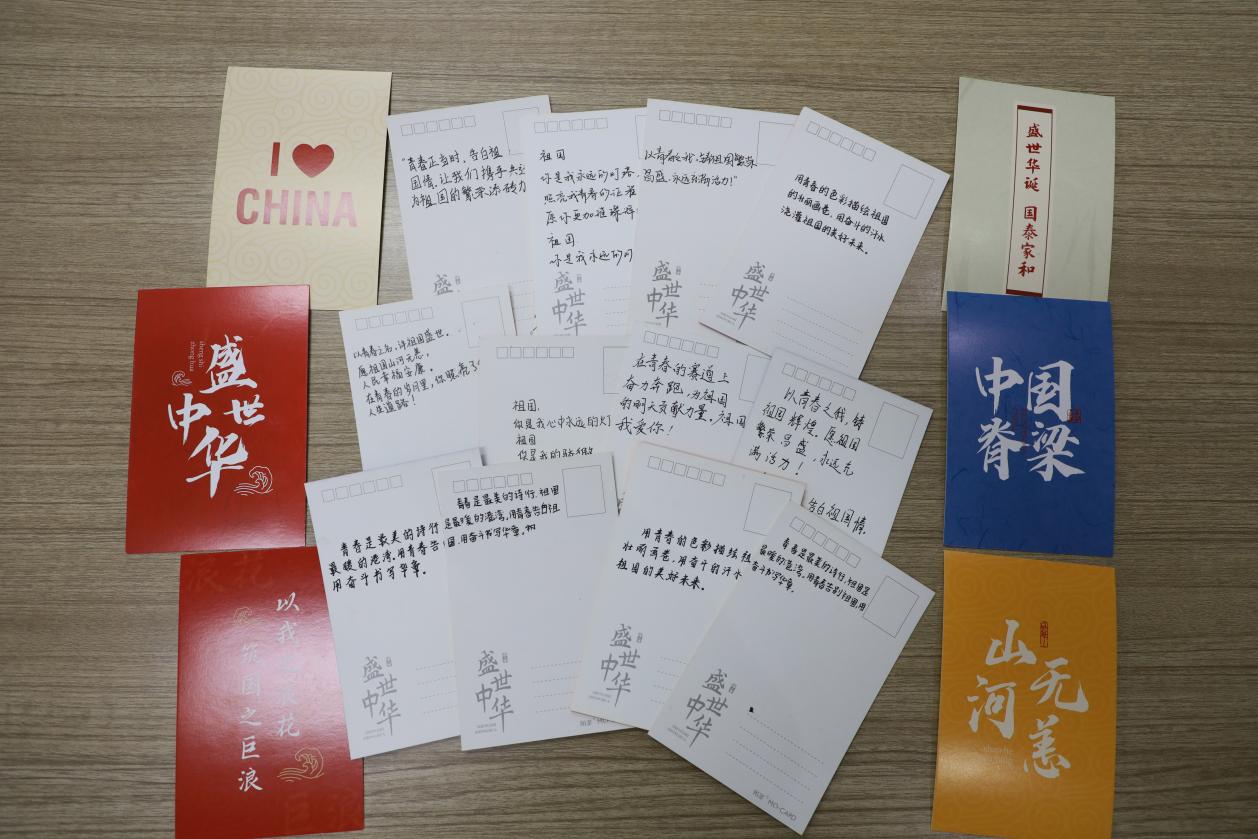 I ❤
CHINA
盛世中华
sheng shi
zhong hua
以我
浪花
筑国之巨浪
"青春正当时,告白祖
国情,让我们携手共
为祖国的繁荣添砖力
盛
中
祖国
你是我永远的灯塔
照亮我青春的征程
愿你更加璀璨
祖国.
你是我永远的
盛世中华
以青春之我,铸祖国繁荣
昌盛,永远充满活力!"
盛世中华
用青春的色彩描绘祖国
的壮丽画卷,用奋斗的汗水
浇灌祖国的美好未来。
盛世中华
以青春之名,许祖国盛世,
愿祖国山河无恙,
人民幸福安康。
在青春的岁月里,你照亮了
人生道路!
祖国,
你是我心中永远的灯
祖国
你是我的骄傲
在青春的赛道上
奋力奔跑,为祖国
的明天贡献力量。祖国
我爱你!
以青春之我,铸
祖国辉煌。愿祖国
繁荣昌盛,永远充
满活力!
告白祖国情.
青春是最美的诗行
最暖的港湾,用青春告
用奋斗书写华章。
盛世中华
青春是最美的诗行.祖国
是最暖的港湾,用青春告白祖
国,用奋斗书写华章。
盛世中华
用青春的色彩描绘祖
壮丽画卷,用奋斗的汗水
祖国的美好未来。
盛世中华
青春是最美的诗行,祖国是
最暖的港湾,用青春告别祖国,用
奋斗书写华章.
盛世中华
MO-CARD
盛世华诞 国泰家和
中国
脊梁
山河
无恙
shan he